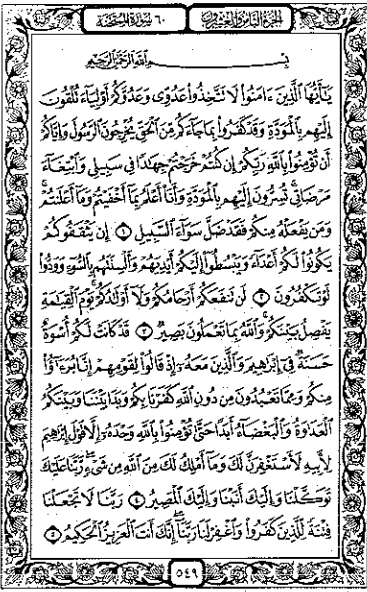 الجزء الثامن والعشرون
٦٠ سورة الممتحنة
بِسْمِ اللَّهِ الرَّحْمَٰنِ الرَّحِيمِ
يَٰٓأَيُّهَا ٱلَّذِينَ ءَامَنُوا۟ لَا تَتَّخِذُوا۟ عَدُوِّى وَعَدُوَّكُمْ أَوْلِيَآءَ تُلْقُونَ
إِلَيْهِم بِٱلْمَوَدَّةِ وَقَدْ كَفَرُوا۟ بِمَا جَآءَكُم مِّنَ ٱلْحَقِّ يُخْرِجُونَ ٱلرَّسُولَ وَإِيَّاكُمْ
أَن تُؤْمِنُوا۟ بِٱللَّهِ رَبِّكُمْ إِن كُنتُمْ خَرَجْتُمْ جِهَٰدًا فِى سَبِيلِى وَٱبْتِغَآءَ
مَرْضَاتِى تُسِرُّونَ إِلَيْهِم بِٱلْمَوَدَّةِ وَأَنَا۠ أَعْلَمُ بِمَآ أَخْفَيْتُمْ وَمَآ أَعْلَنتُمْ
وَمَن يَفْعَلْهُ مِنكُمْ فَقَدْ ضَلَّ سَوَآءَ ٱلسَّبِيلِ ١ إِن يَثْقَفُوكُمْ
يَكُونُوا۟ لَكُمْ أَعْدَآءً وَيَبْسُطُوٓا۟ إِلَيْكُمْ أَيْدِيَهُمْ وَأَلْسِنَتَهُم بِٱلسُّوٓءِ وَوَدُّوا۟
لَوْ تَكْفُرُونَ ٢ لَن تَنفَعَكُمْ أَرْحَامُكُمْ وَلَآ أَوْلَٰدُكُمْ يَوْمَ ٱلْقِيَٰمَةِ
يَفْصِلُ بَيْنَكُمْ وَٱللَّهُ بِمَا تَعْمَلُونَ بَصِيرٌ ٣ قَدْ كَانَتْ لَكُمْ أُسْوَةٌ
حَسَنَةٌ فِىٓ إِبْرَٰهِيمَ وَٱلَّذِينَ مَعَهُۥٓ إِذْ قَالُوا۟ لِقَوْمِهِمْ إِنَّا بُرَءَٰٓؤُا۟
مِنكُمْ وَمِمَّا تَعْبُدُونَ مِن دُونِ ٱللَّهِ كَفَرْنَا بِكُمْ وَبَدَا بَيْنَنَا وَبَيْنَكُمُ
ٱلْعَدَٰوَةُ وَٱلْبَغْضَآءُ أَبَدًا حَتَّىٰ تُؤْمِنُوا۟ بِٱللَّهِ وَحْدَهُۥٓ إِلَّا قَوْلَ إِبْرَٰهِيمَ
لِأَبِيهِ لَأَسْتَغْفِرَنَّ لَكَ وَمَآ أَمْلِكُ لَكَ مِنَ ٱللَّهِ مِن شَىْءٍ رَّبَّنَا عَلَيْكَ
تَوَكَّلْنَا وَإِلَيْكَ أَنَبْنَا وَإِلَيْكَ ٱلْمَصِيرُ ٤ رَبَّنَا لَا تَجْعَلْنَا
فِتْنَةً لِّلَّذِينَ كَفَرُوا۟ وَٱغْفِرْ لَنَا رَبَّنَآ إِنَّكَ أَنتَ ٱلْعَزِيزُ ٱلْحَكِيمُ ٥
٥٤٩